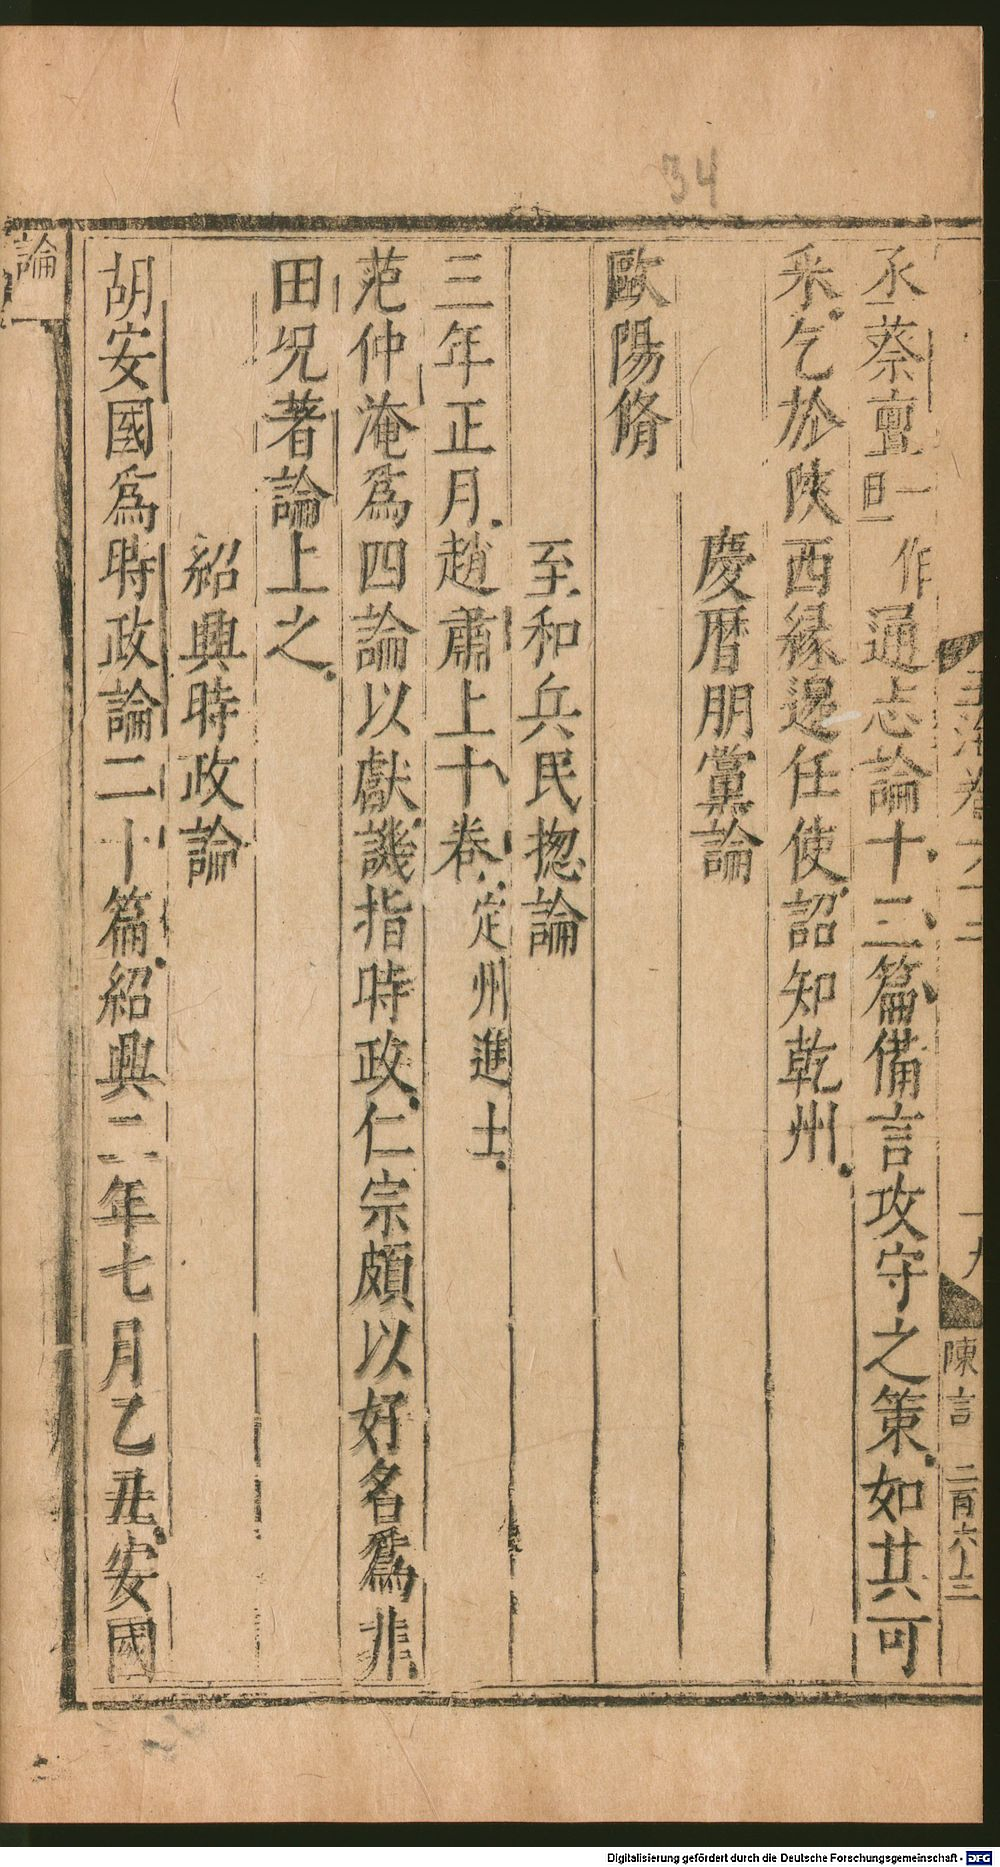 玉海卷六十二
十九
陳言 二百六十三
丞蔡亶一作旦通志論十二篇備言攻守之策如其可
采乞於陝西緣邊任使詔知乾州
慶曆朋黨論
歐陽脩
至和兵民揔論
三年正月趙肅上十卷定州進士
范仲淹爲四論以獻譏指時政仁宗頗以好名爲非
田況著論上之
紹興時政論
胡安國爲時政論二十篇紹興二年七月乙丑安國
論
34
Digitalisierung gefördert durch die Deutsche Forschungsgemeinschaft - DFG